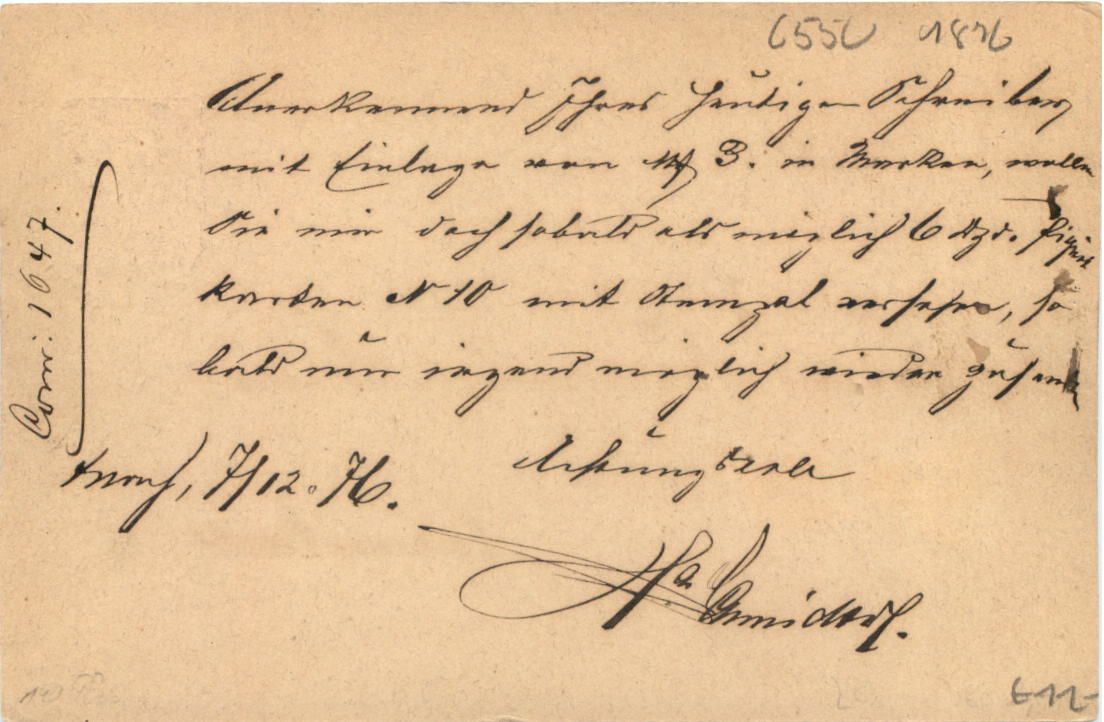 655U 1876
Anerkennend Ihres heutigen Schreibens
mit Einlage von M 3. in Marken, wollen
Sie mir doch sobald als möglich 6 Dzd.
karten N 10 mit Stempel versehen, so
bald nur irgend möglich wieder zusenden
Corr: 1647.
7/12. 76.
Achtungsvoll